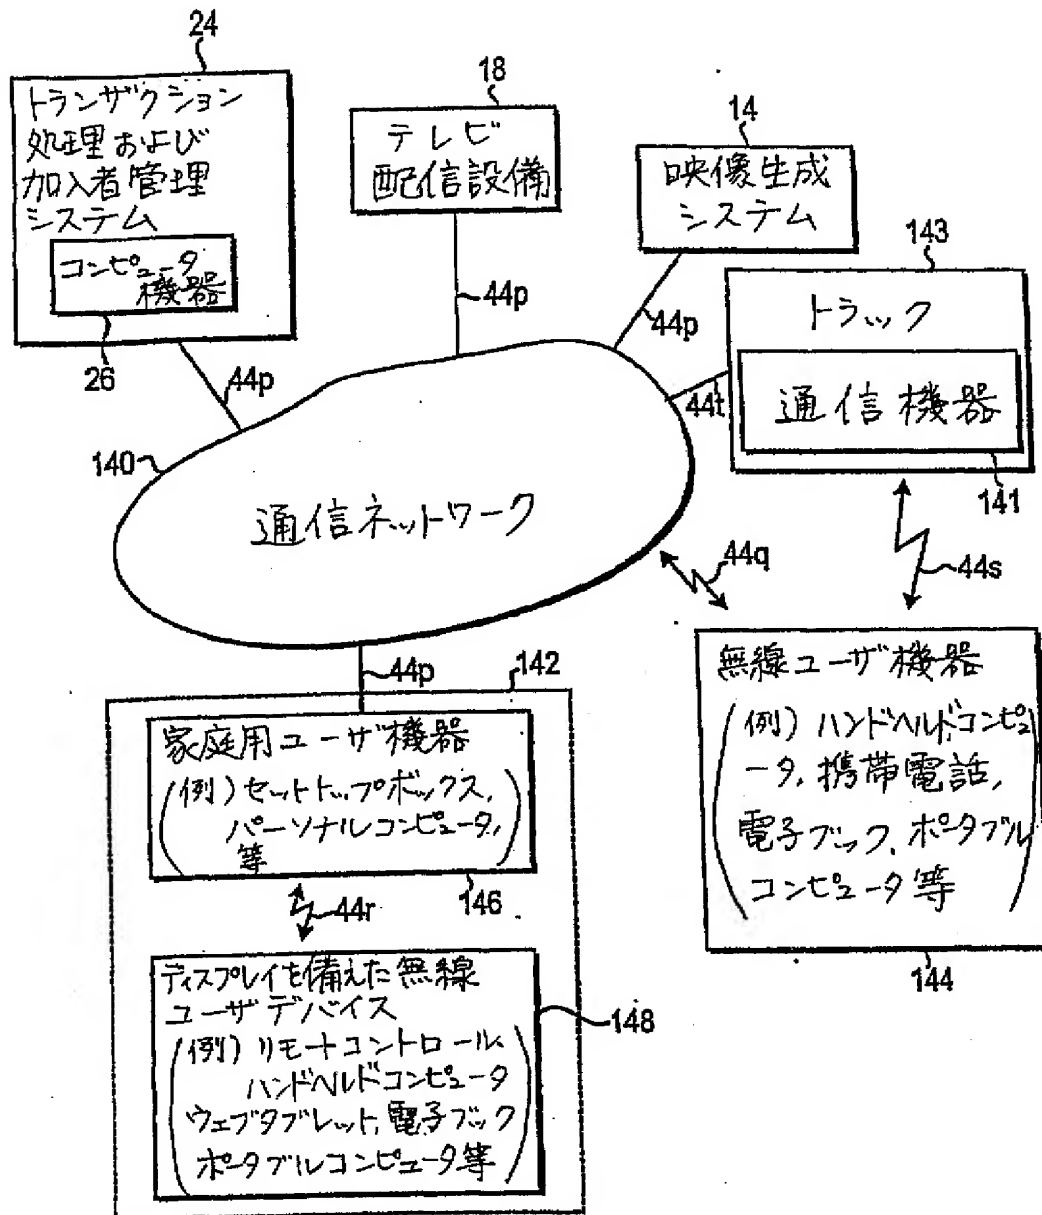 24
トランザクション
処理および
加入者管理
システム
コンピュータ
機器
26
44p
18
テレビ
配信設備
44p
14
映像生成
システム
44p
143
トラック
通信機器
141
44t
140
通信ネットワーク
44q
44s
44p
142
家庭用ユーザ機器
(例)セットトップボックス,
パーソナルコンピュータ,
等
146
44r
ディスプレイを備えた無線
ユーザデバイス
(例)リモートコントロール、
ハンドヘルドコンピュータ
ウェブタブレット,電子ブック
ポータブルコンピュータ等
148
無線ユーザ機器
(例)ハンドヘルドコンピュ
ータ,携帯電話,
電子ブック,ポータブル
コンピュータ等
144